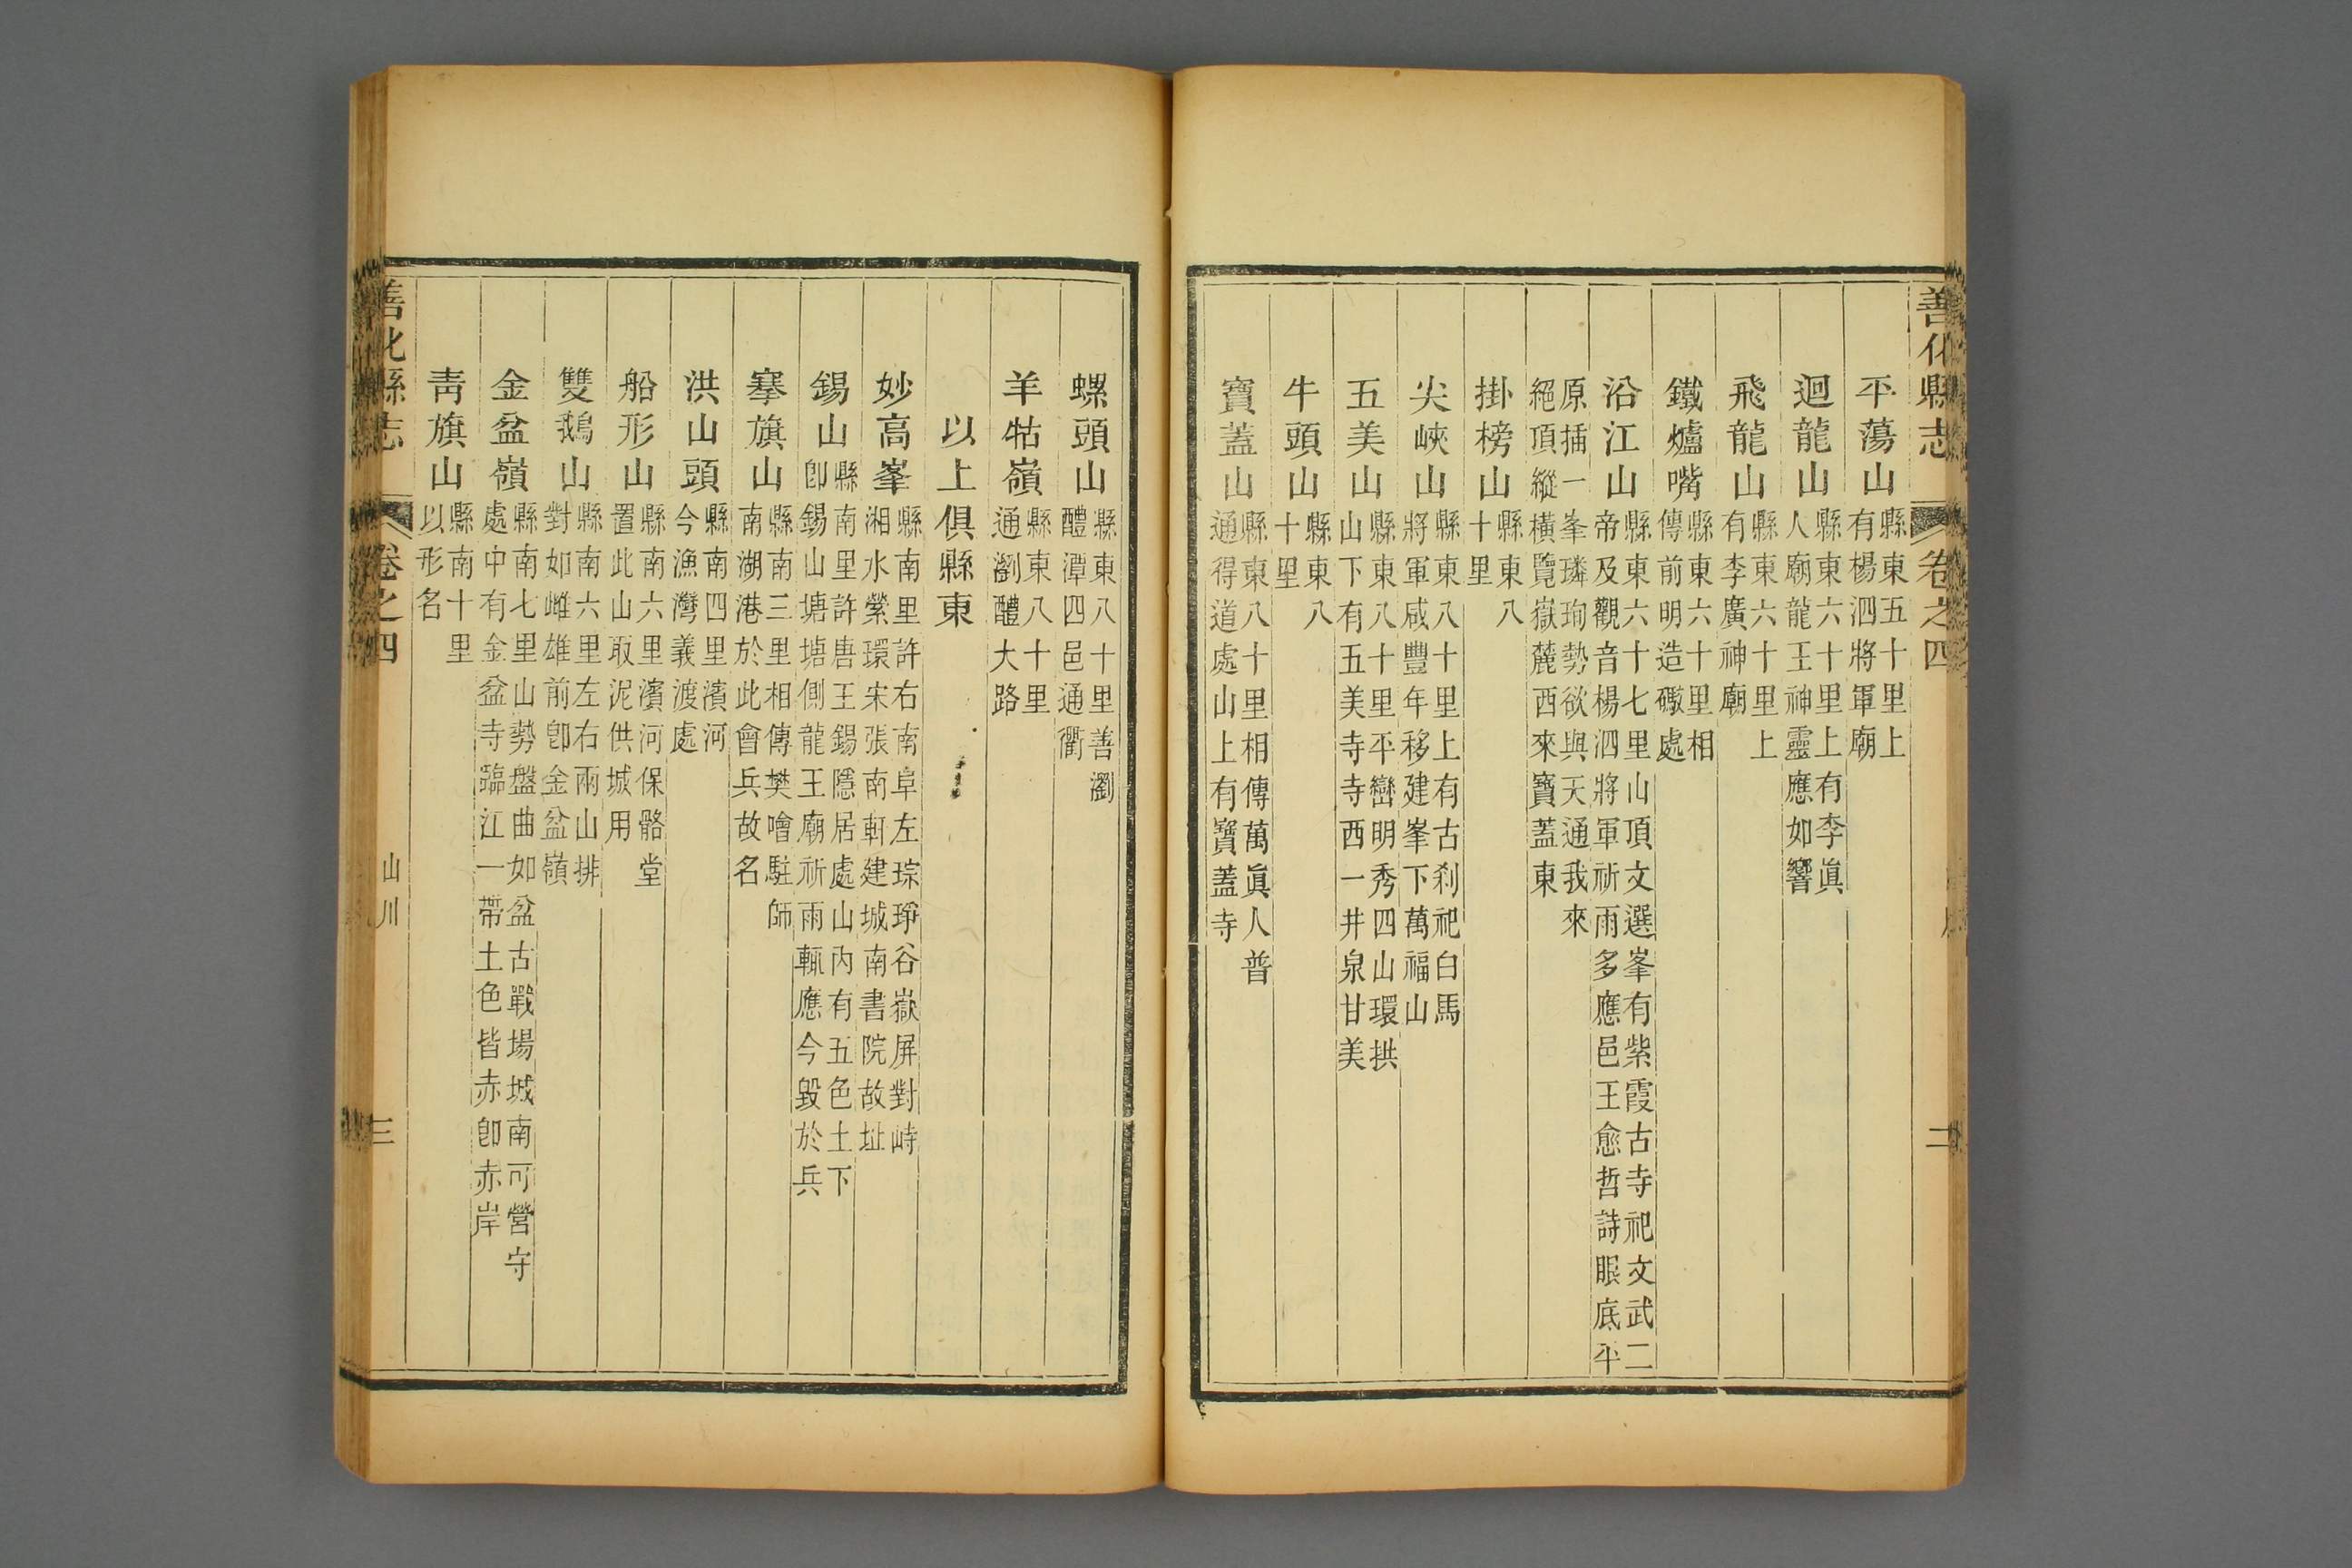 善化縣志 卷之四 二
平蕩山縣東五十里上有楊泗將軍廟
迴龍山縣東六十里上有李眞人廟龍王神靈應如響
飛龍山縣東六十里上有李廣神廟
鐵爐嘴縣東六十里相傳前明造礮處
沿江山縣東六十七里山頂文選峯有紫霞古寺祀文武二帝及觀音楊泗將軍祈雨多應邑王愈哲詩眼底平
原插一峯璘珣勢欲與天通我來絕頂縱橫覽嶽麓西來寶蓋東
掛榜山縣東八十里
尖峽山縣東八十里上有古刹祀白馬將軍咸豐年移建峯下萬福山
五美山縣東八十里平巒明秀四山環拱山下有五美寺寺西一井泉甘美
牛頭山縣東八十里
寶蓋山縣東八十里相傳萬眞人普通得道處山上有寶蓋寺
螺頭山縣東八十里善瀏醴潭四邑通衢
羊牯嶺縣東八十里通瀏醴大路
以上俱縣東
妙高峯縣南里許右南阜左琮琤谷嶽屏對峙湘水縈環宋張南軒建城南書院故址
錫山縣南里許唐王錫隱居處山內有五色土下卽錫山塘塘側龍王廟祈雨輒應今毀於兵
搴旗山縣南三里相傳樊噲駐師南湖港於此會兵故名
洪山頭縣南四里濱河今漁灣義渡處
船形山縣南六里濱河保骼堂置此山取泥供城用
雙鵝山縣南六里左右兩山排對如雌雄前卽金盆嶺
金盆嶺縣南七里山勢盤曲如盆古戰場城南可營守處中有金盆寺臨江一帶土色皆赤卽赤岸
靑旗山縣南十里以形名
善化縣志 卷之四 山川 三